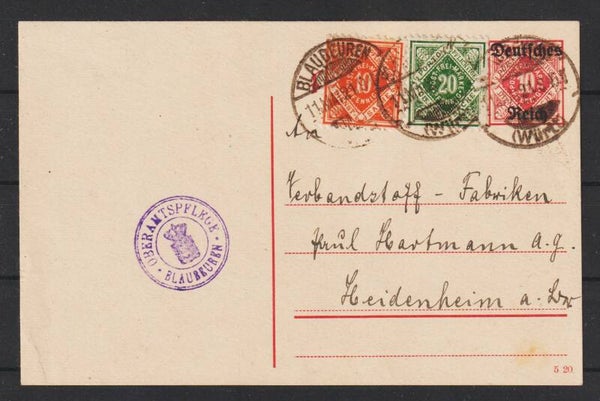 BLAUBEUREN
10
20
Deutsches
10
Reich
(Württ)
An
Verbandstoff - Fabriken
Paul Hartmann A.G.
Heidenheim a. Brz
OBERAMTSPFLEGE
· BLAUBEUREN ·
5 20